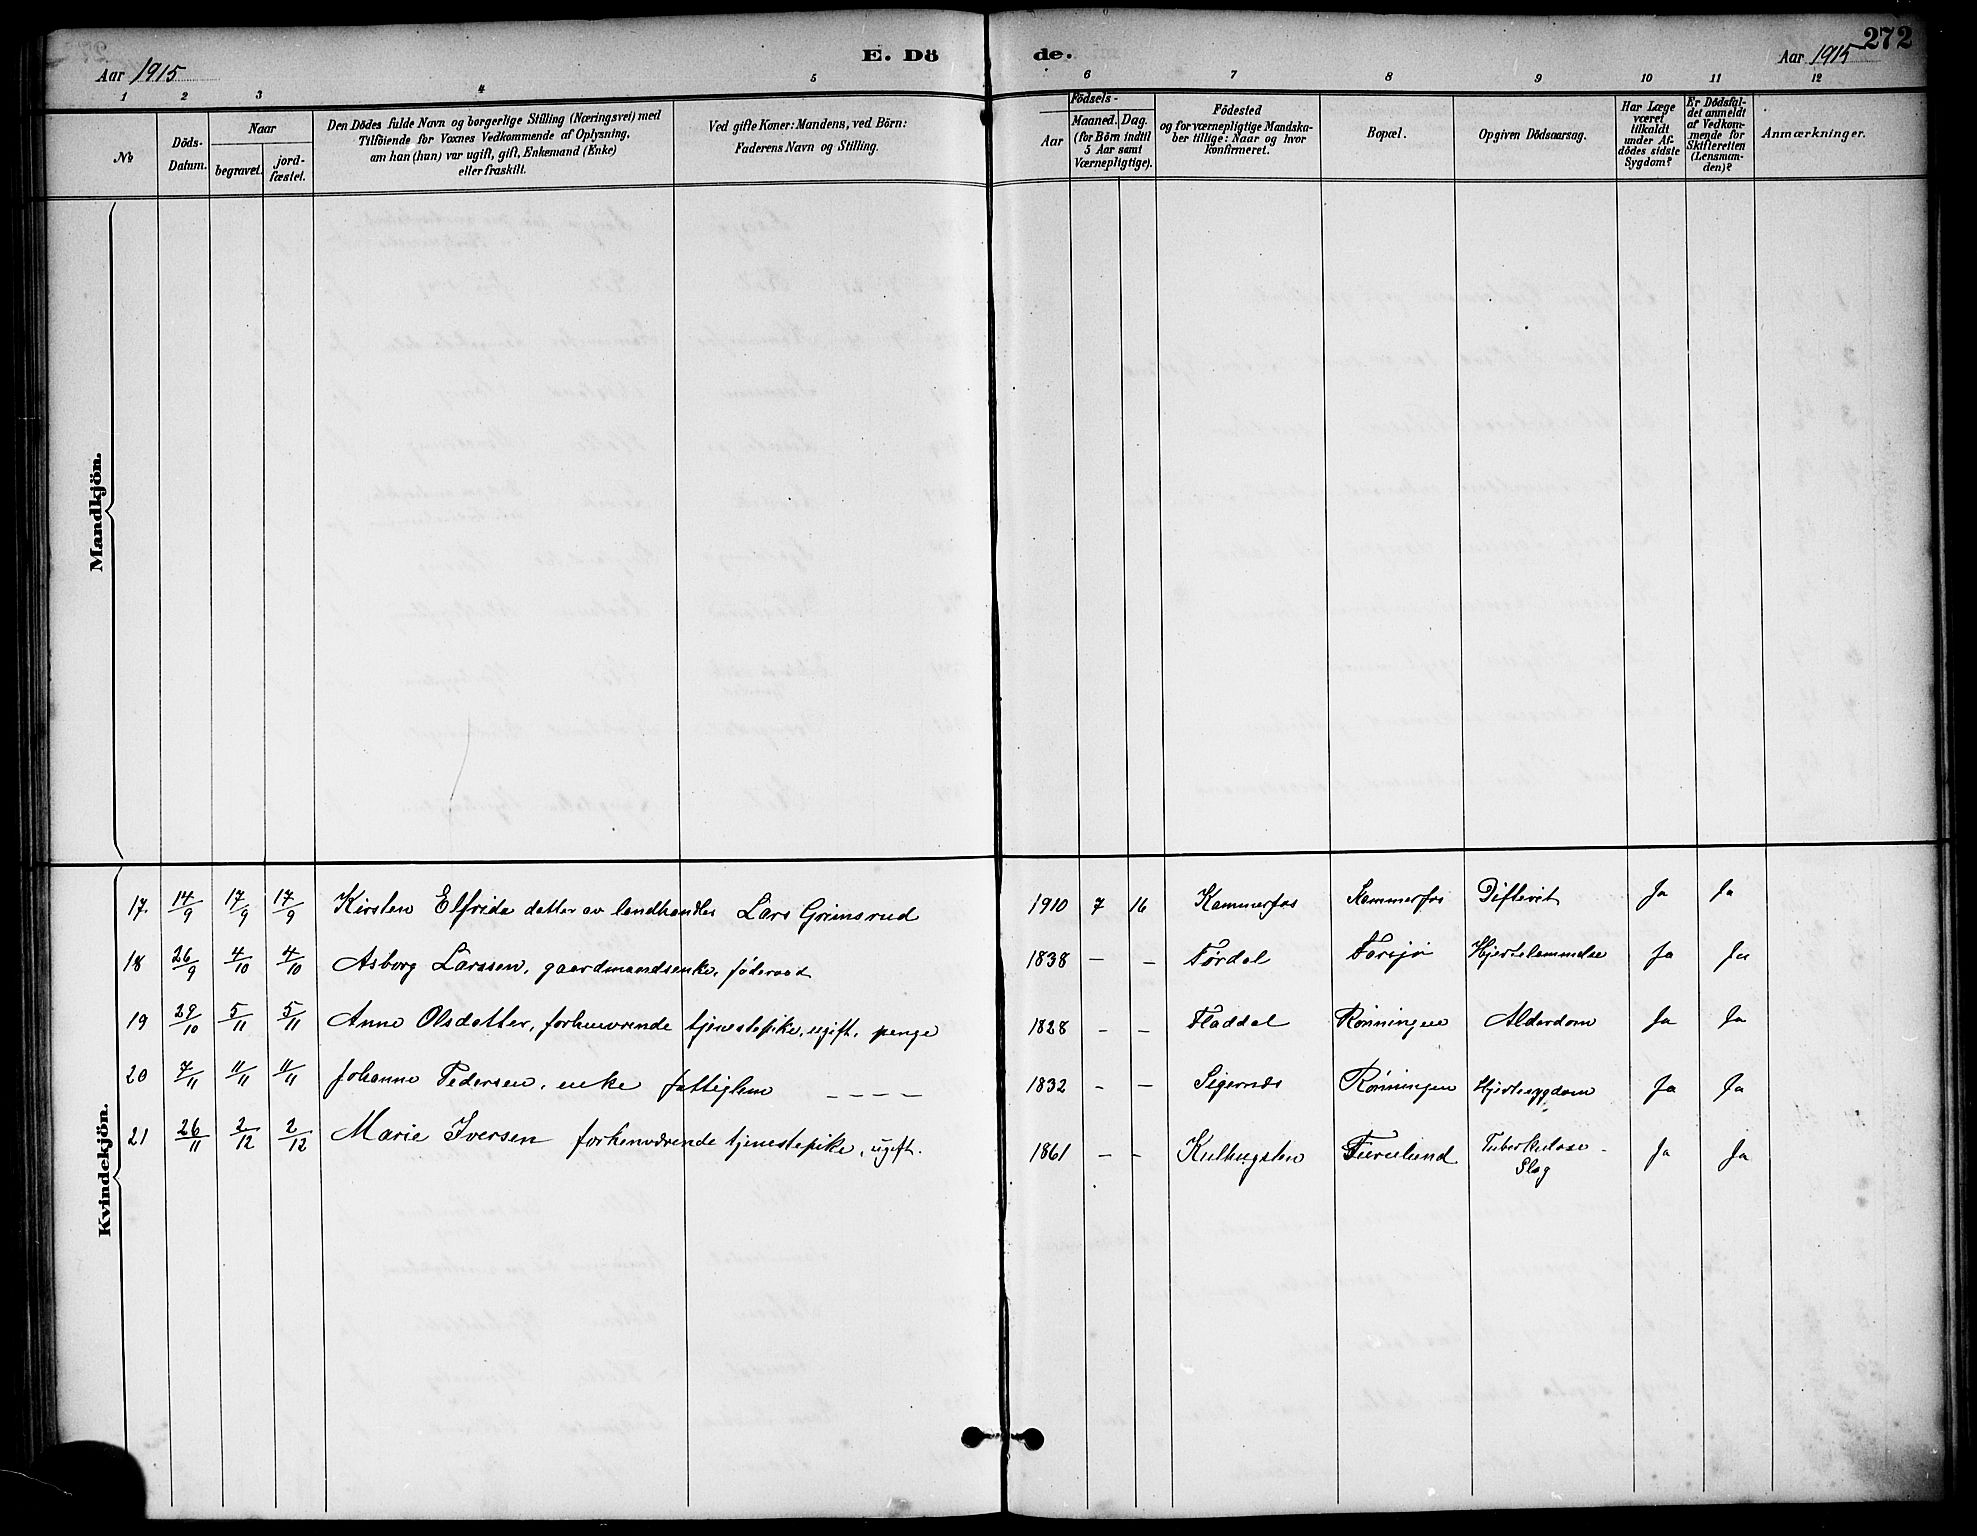 272
Aar 1915 E. Dö de. Aar 1915
1 2 3 4 5 6 7 8 9 10 11 12
No
Döds-Datum.
Naar
begravet. jord-fæstet.
Den Dödes fulde Navn og borgerlige Stilling (Næringsvei) med
Tilföiende for Voxnes Vedkommende af Oplysning,
om han (hun) var ugift, gift, Enkemand (Enke)
eller fraskilt.
Ved gifte Koner: Mandens, ved Börn:
Faderens Navn og Stilling.
Födsels-
Aar Maaned. Dag.
(for Börn indtil
5 Aar samt
Værnepligtige).
Födested
og for værnepligtige Mandska-
ber tillige: Naar og hvor
konfirmeret.
Bopæl.
Opgiven Dödsaarsag.
Har Læge
været
tilkaldt
under Af-
dödes sidste
Sygdom?
Er Dödsfal-
det anmeldt
af Vedkom-
mende for
Skifteretten
(Lensman-
den)?
Anmærkninger.
Mandkjön.
Kvindekjön.
17. 14/9 17/9 17/9 Kirsten Elfride datter av landhandler Lars Grimsrud 1910 7 16 Kammerfos Kammerfos Difterit Ja Ja
18 26/9 4/10 4/10 Asborg Larssen, gaardmandsenke, föderaad 1838 — — Tørdal Farsjø Hjertelammelse Ja Ja
19 29/10 5/11 5/11 Anne Olsdatter, forhenværende tjenestepike, ugift, penge 1828 - - Rønningen Alderdom Ja Ja
20 7/11 11/11 11/11 Johanne Pedersen, enke fattiglem - - - - 1832 - - Sigernes Rønningen Hjertesygdom Ja Ja
21 26/11 2/12 2/12 Marie Iversen forhenværende tjenestepike, ugift. 1861 - - Furulund Tuberkulose -
Slag Ja Ja